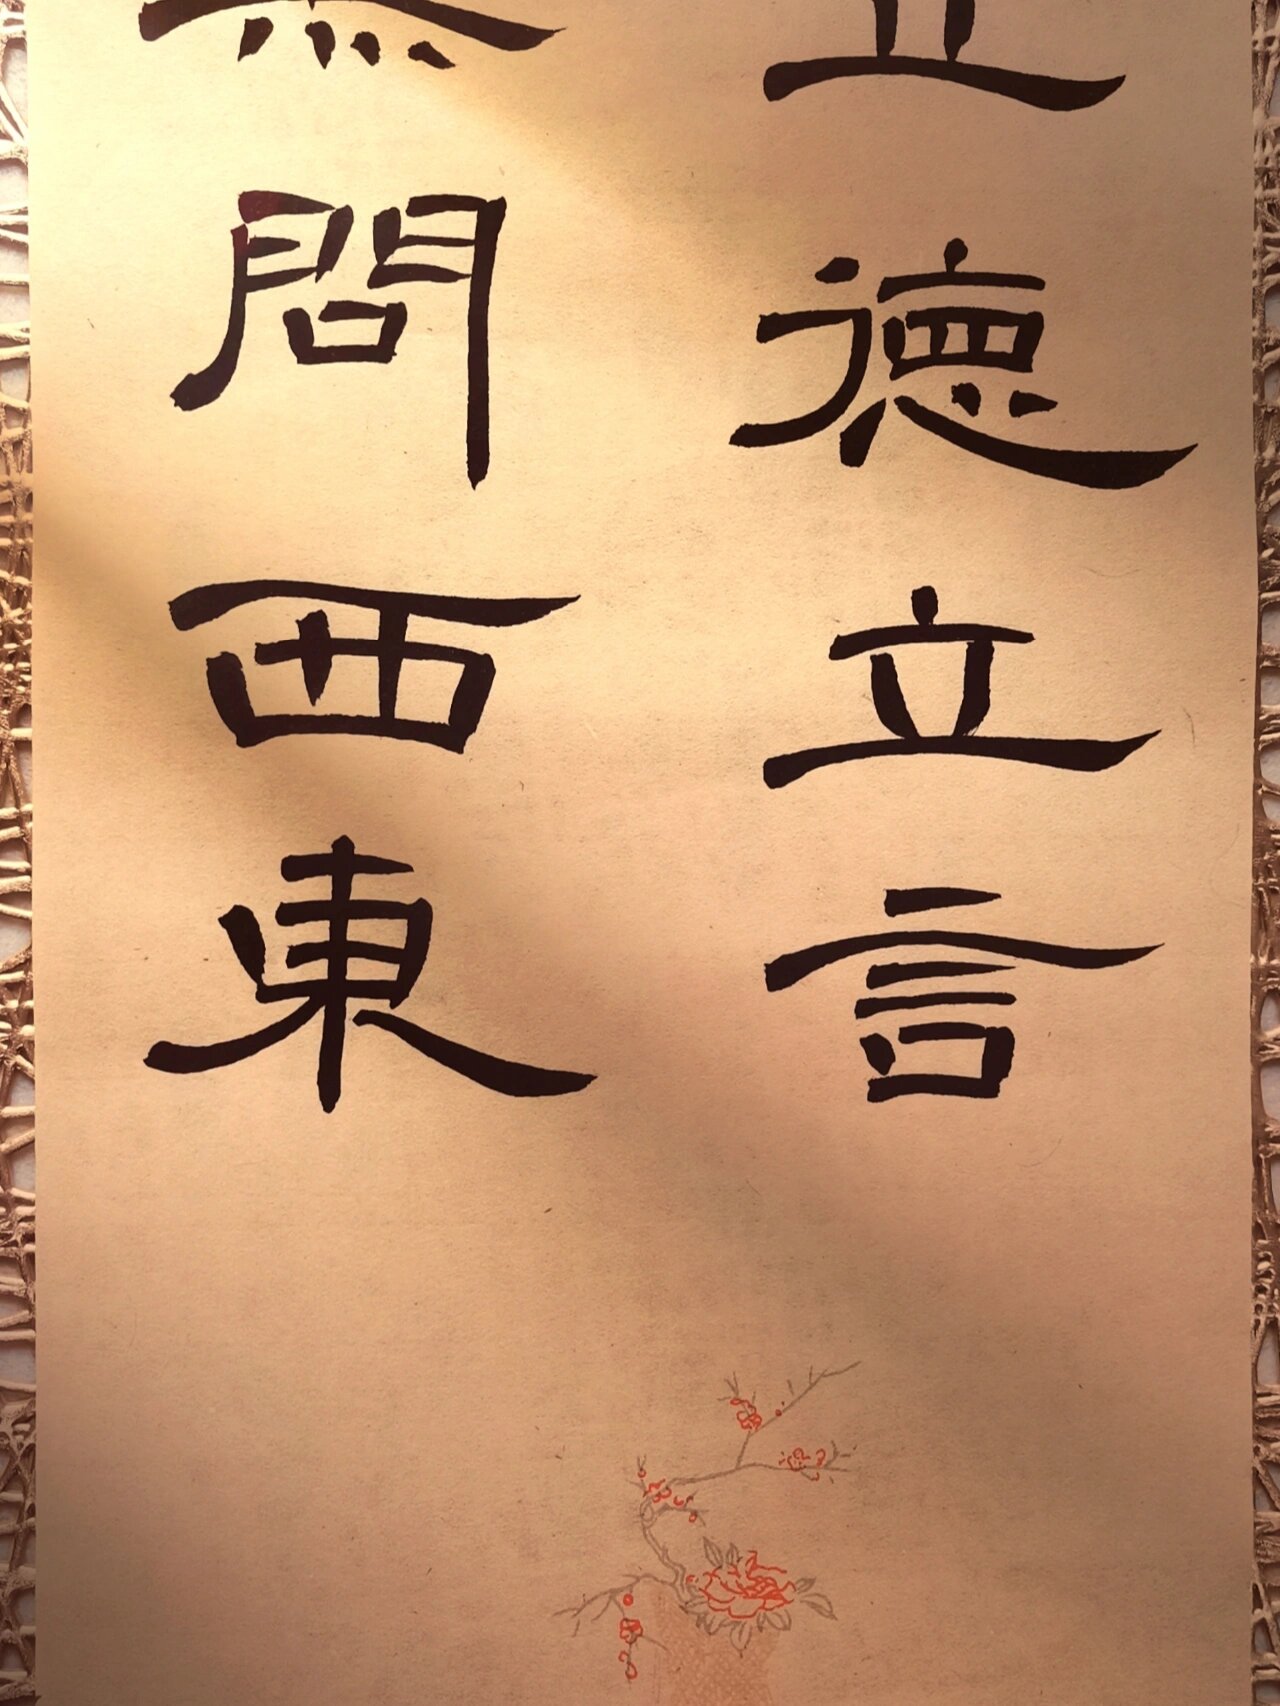 立德立言
無問西東